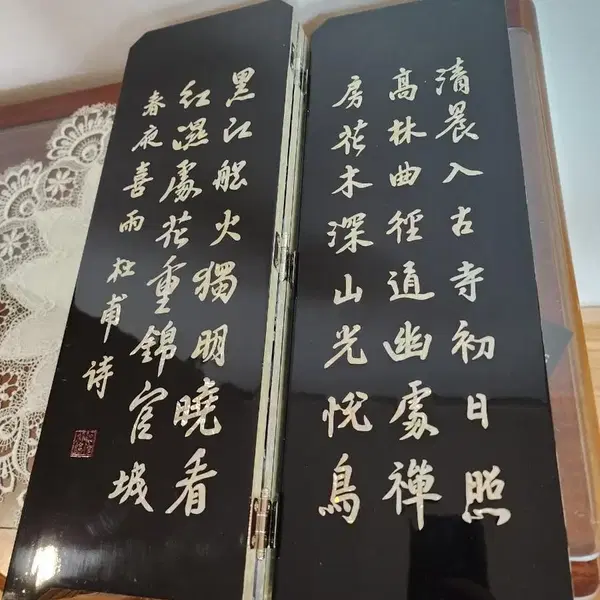 清晨入古寺初日照
高林曲徑通幽處禪
房花木深山光悅鳥
黑江船火獨明曉看
紅濕處花重錦官城
春夜喜雨 杜甫詩